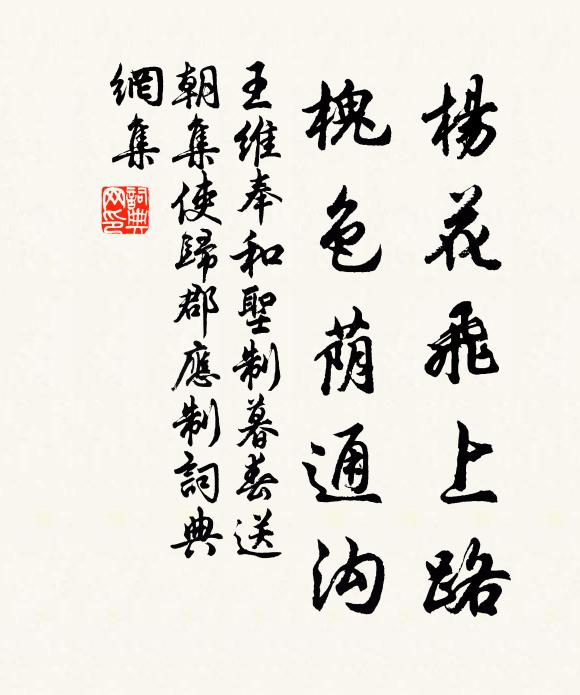 楊花飛上路
槐色荫通沟
王維奉和聖制暮春送
朝集使歸郡應制詞典
網集
詞典
网印